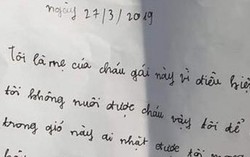 ngày 27/3/2019
Tôi là mẹ của cháu gái này vì điều kiện
tôi không nuôi được cháu vậy tôi để
trong giỏ này ai nhặt được tôi mong